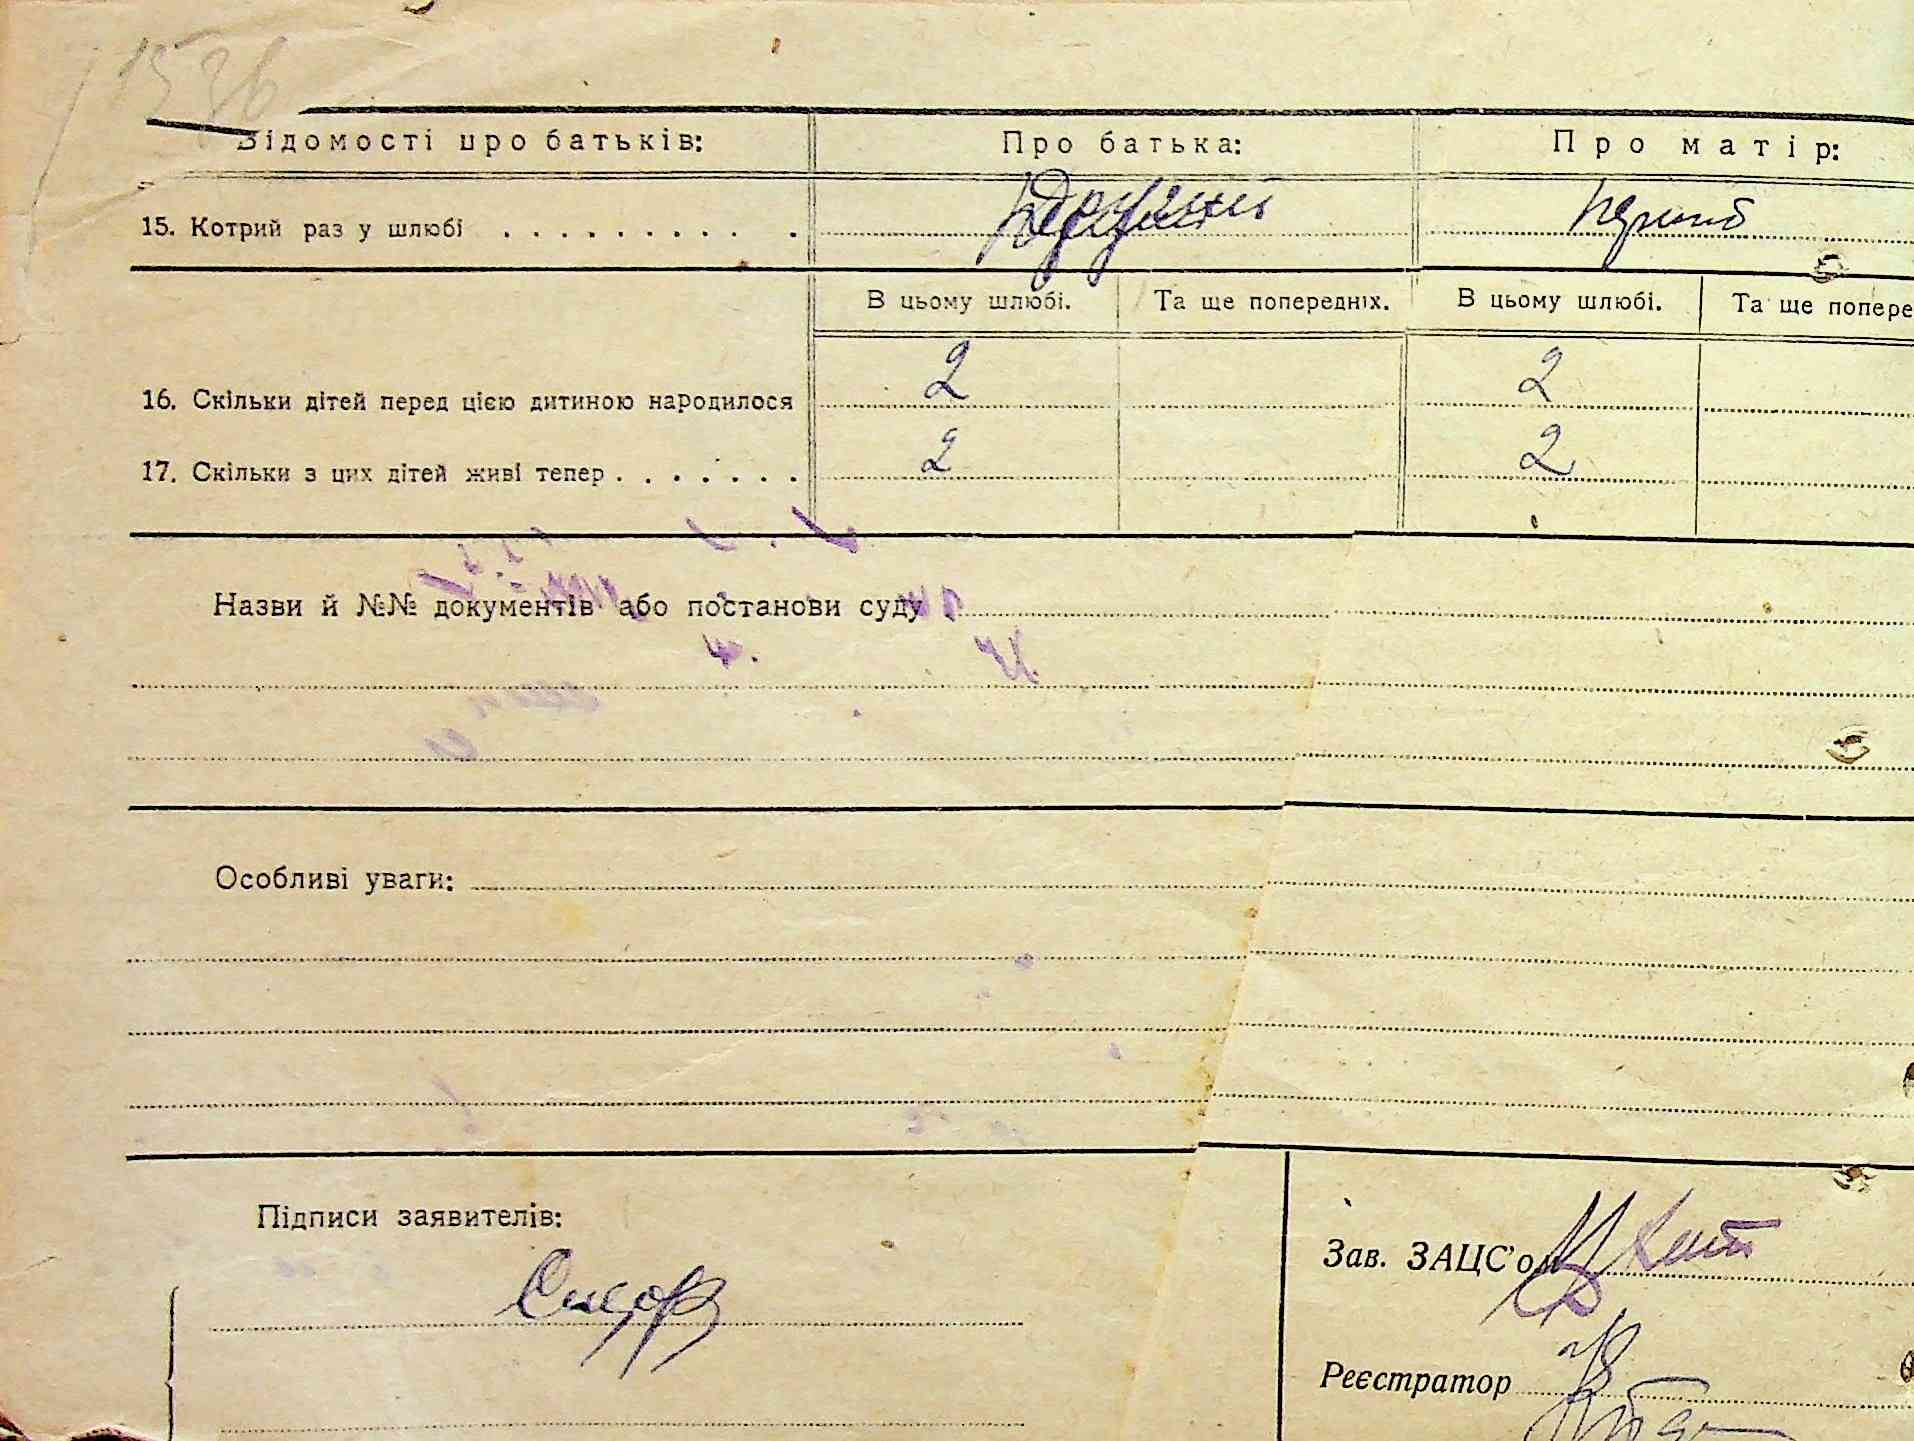 Відомості про батьків: Про батька: Про матір:
15. Котрий раз у шлюбі . . . . . . . . . . Другий перший
В цьому шлюбі. Та ще попередніх. В цьому шлюбі. Та ще попере
16. Скільки дітей перед цією дитиною народилося 2 2
17. Скільки з цих дітей живі тепер . . . . . . . 2 2
Назви й №№ документів або постанови суду
Особливі уваги:
Підписи заявителів:
Зав. ЗАЦС'ом
Реєстратор